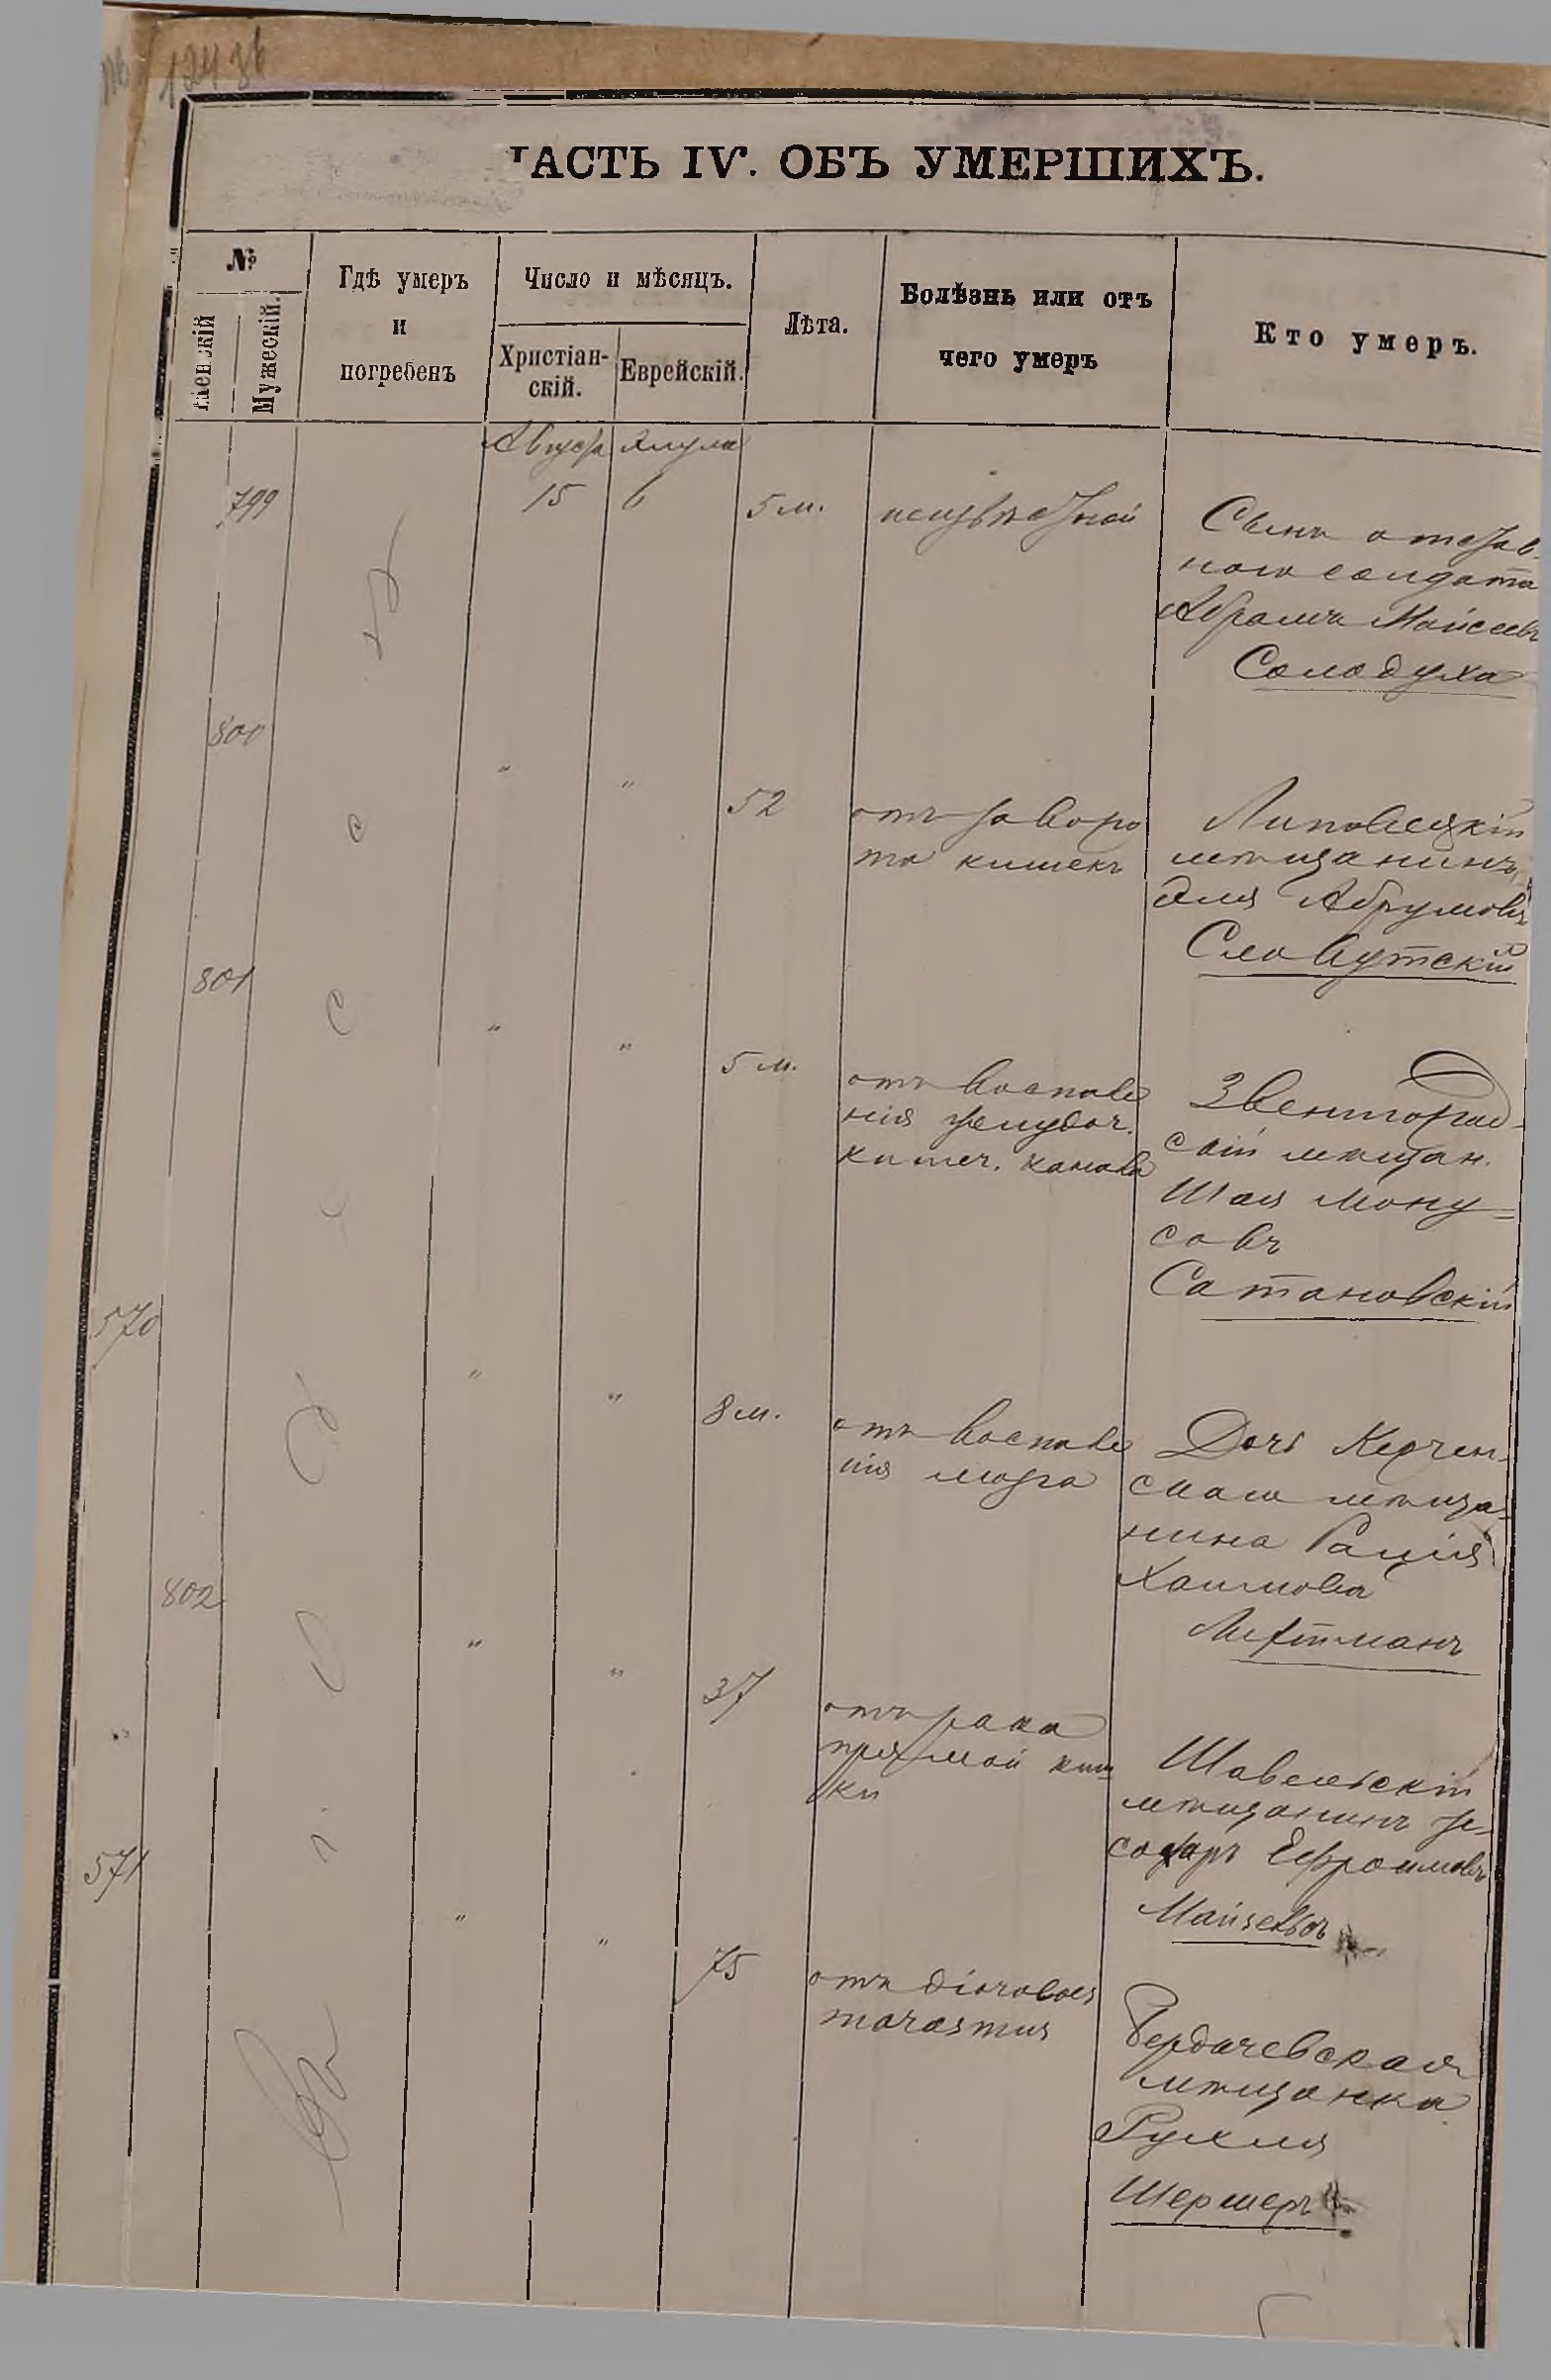 ЧАСТЬ IV. ОБЪ УМЕРШИХЪ.
№
Женскій
Мужескій.
Гдѣ умеръ
и
погребенъ
Число и мѣсяцъ.
Христіан-
скій.
Еврейскій.
Лѣта.
Болѣзнь или отъ
чего умеръ
Кто умеръ.
Августа Элула
799 15 6 5 м. неизвѣстной
Сынъ отстав-
ного солдата
Абрамъ Мойсеевъ
Солодуха
800 " " 52 отъ заворо
та кишекъ
Липовецкій
мѣщанинъ
Эля Абрумовъ
Славутскій
801 " " 5 м. отъ воспале
нія желудоч.
кишеч. канала
Звенигород-
скій мѣщан.
Шая Мону-
совъ
Сатановскій
570 " " 8 м. отъ воспале
нія мозга
Дочь Керчен-
скаго мѣща-
нина
Хаимова
Литманъ
802 " " 37 отъ рака
прямой киш
ки
Шавельскій
мѣщанинъ
Ефроимовъ
Майзельсъ
571 " " 75 отъ
marasmus
Бердичевская
мѣщанка
Рухля
Шермеръ